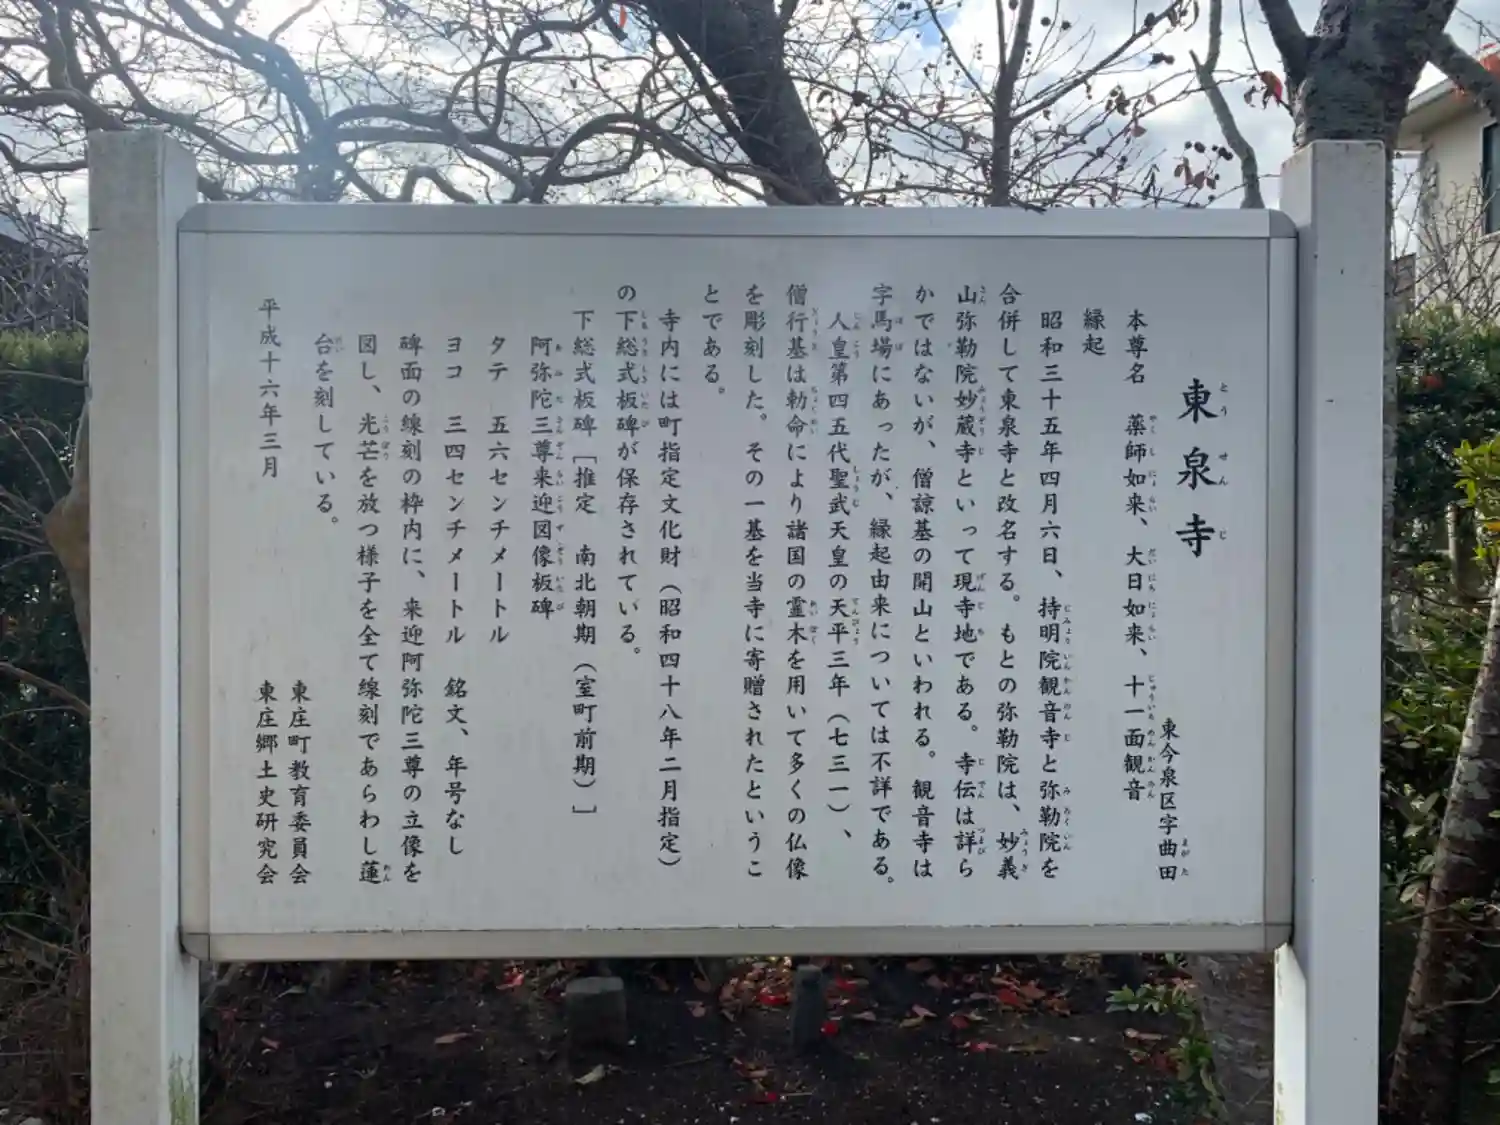 東泉寺
東今泉区字曲田
本尊名　薬師如来、大日如来、十一面観音
縁起
昭和三十五年四月六日、持明院観音寺と弥勒院を
合併して東泉寺と改名する。もとの弥勒院は、妙義
山弥勒院妙蔵寺といって現寺地である。寺伝は詳ら
かではないが、僧諒基の開山といわれる。観音寺は
字馬場にあったが、縁起由来については不詳である。
人皇第四五代聖武天皇の天平三年（七三一）、
僧行基は勅命により諸国の霊木を用いて多くの仏像
を彫刻した。その一基を当寺に寄贈されたというこ
とである。
寺内には町指定文化財（昭和四十八年二月指定）
の下総式板碑が保存されている。
下総式板碑［推定　南北朝期（室町前期）］
阿弥陀三尊来迎図像板碑
タテ　五六センチメートル
ヨコ　三四センチメートル　銘文、年号なし
碑面の線刻の枠内に、来迎阿弥陀三尊の立像を
図し、光芒を放つ様子を全て線刻であらわし蓮
台を刻している。
平成十六年三月
東庄町教育委員会
東庄郷土史研究会